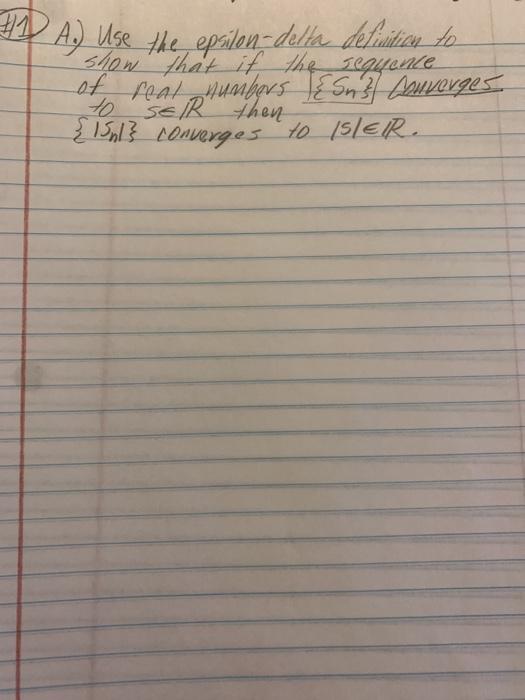 #1 A.) Use the epsilon-delta definition to
show that if the sequence
of real numbers {Sn} Converges
to s∈ℝ then
{|Sn|} converges to |s|∈ℝ.